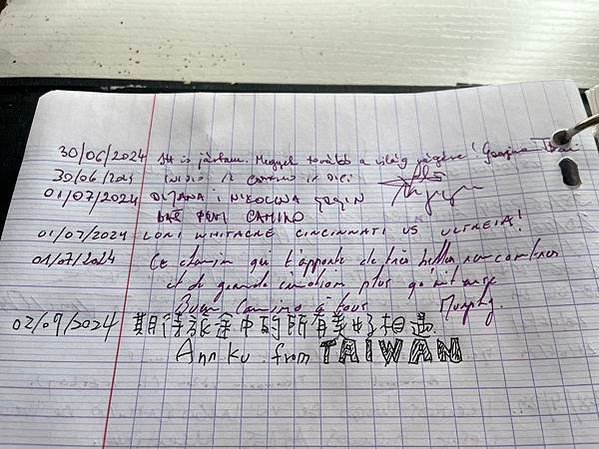 30/06/2024 Itt is jártam. Megyek tovább a világ végére!
30/06/2024
01/07/2024 DIJANA I NIKOLINA
CAMINO
01/07/2024 LORI WHITACRE CINCINNATI US ULTREIA!
01/07/2024 Ce chemin qui t'apporte de très belles rencontres
et de grande émotion plus qu'
Buen Camino à tous
02/07/2024 期待旅途中的所有美好相遇.
Ann.Ku. from TAIWAN